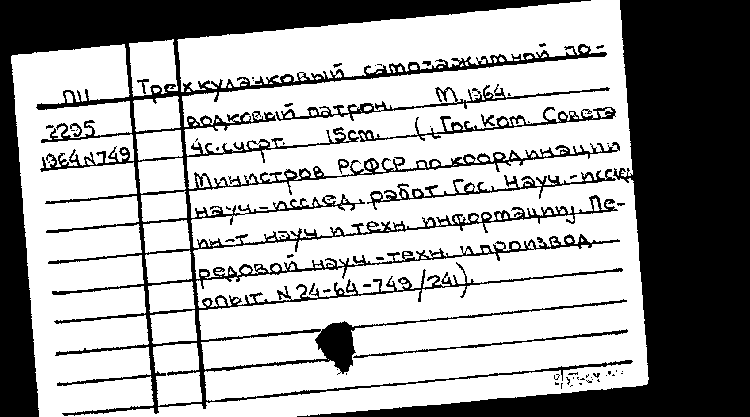 ПЦ Трехкулачковый самозажимной по-
2295 водковый патрон. М, 1964.
1964 N749 4с. с черт. 15 cm. (Гос. Ком. Совета
Министров РСФСР по координации
науч.-исслед. работ. Гос. Науч.-исслед.
ин-т науч. и техн. информации. Пе-
редовой науч.-техн. и производ.
опыт. N 24-64-749/241).